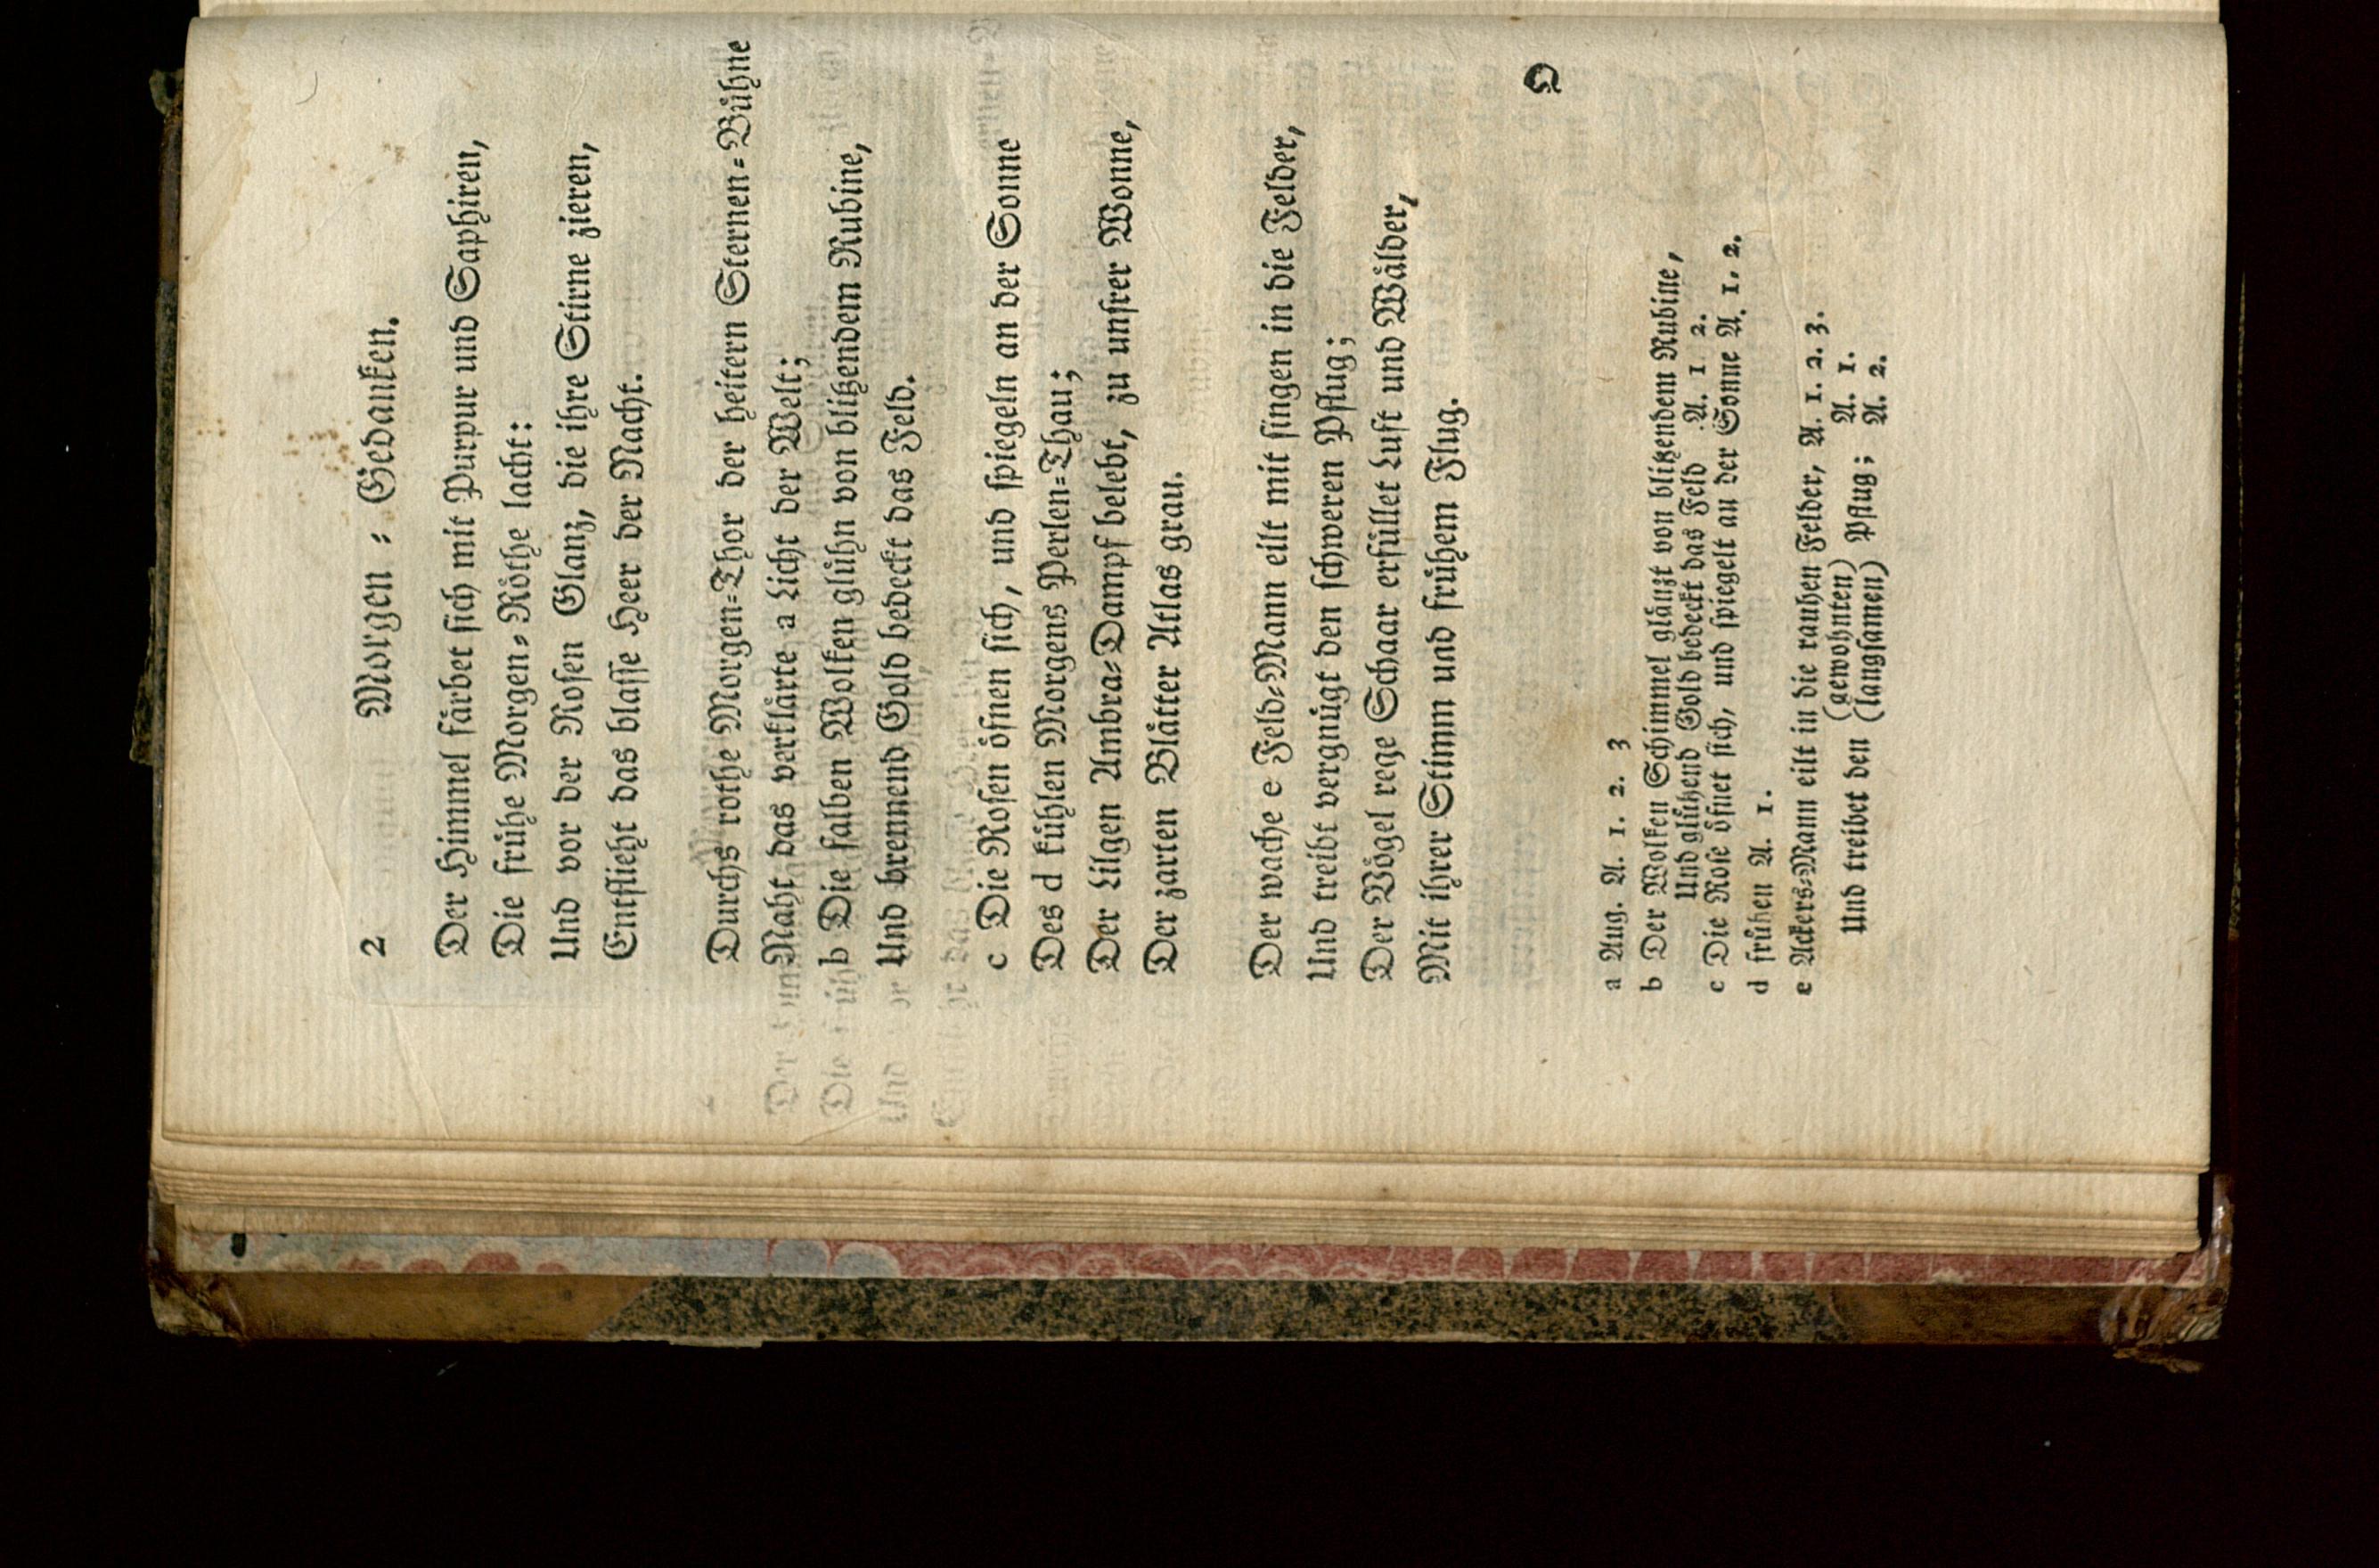 2 Morgen = Gedanken.
Der Himmel färbet sich mit Purpur und Saphiren,
Die frühe Morgen=Röthe lacht:
Und vor der Rosen Glanz, die ihre Stirne zieren,
Entflieht das blasse Heer der Nacht.
Durchs rothe Morgen=Thor der heitern Sternen=Bühne
Naht das verklärte a Licht der Welt;
b Die falben Wolken glühn von blitzendem Rubine,
Und brennend Gold bedeckt das Feld.
c Die Rosen öfnen sich, und spiegeln an der Sonne
Des d kühlen Morgens Perlen=Thau;
Der Lilgen Ambra=Dampf belebt, zu unsrer Wonne,
Der zarten Blätter Atlas grau.
Der wache e Feld=Mann eilt mit singen in die Felder,
Und treibt vergnügt den schweren Pflug;
Der Vögel rege Schaar erfüllet Luft und Wälder,
Mit ihrer Stimm und frühem Flug.
O
a Aug. A. 1. 2. 3
b Der Wolken Schimmel glänzt von blitzendem Rubine,
Und glühend Gold bedeckt das Feld A. 1 2.
c Die Rose öfnet sich, und spiegelt an der Sonne A. 1. 2.
d frühen A. 1.
e Ackers=Mann eilt in die rauhen Felder, A. 1. 2. 3.
(gewohnten) A. 1.
Und treibet den (langsamen) Pflug; A. 2.